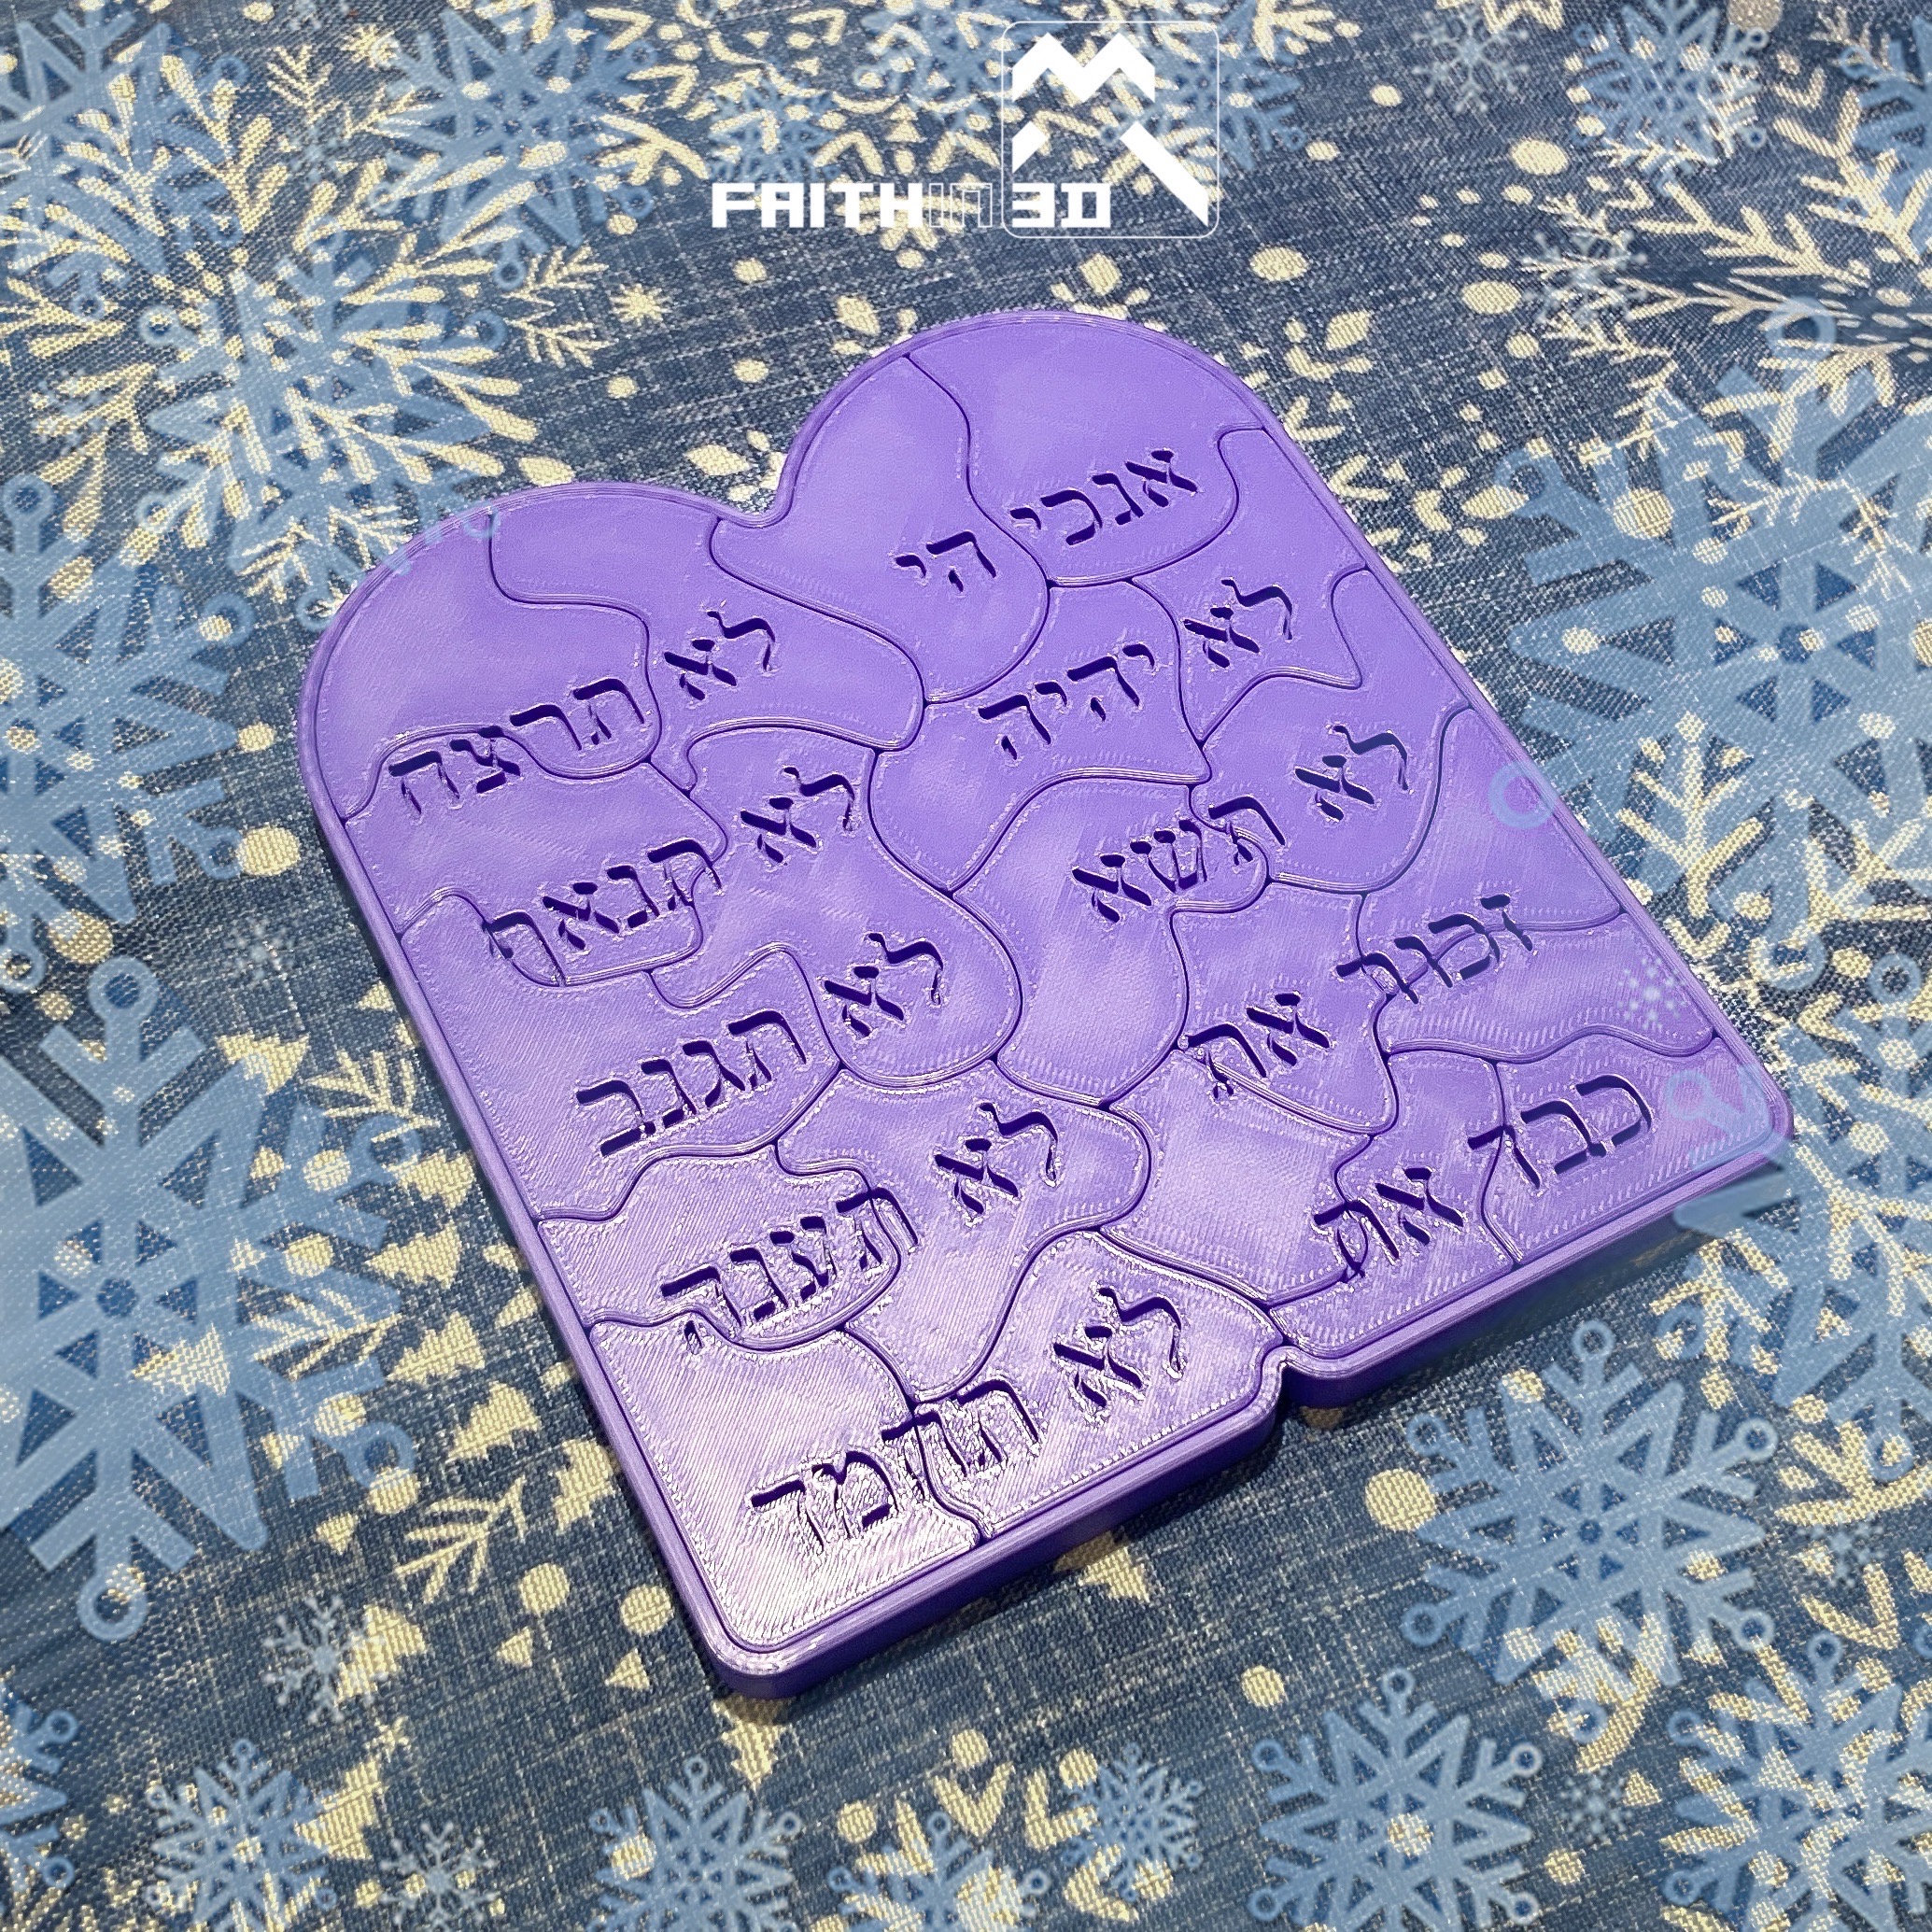 FAITHIN 3D
אנכי הי
לא יהיה
לא תשא
זכור את
כבד את
לא תרצה
לא תנאף
לא תגנב
לא תענה
לא תחמד